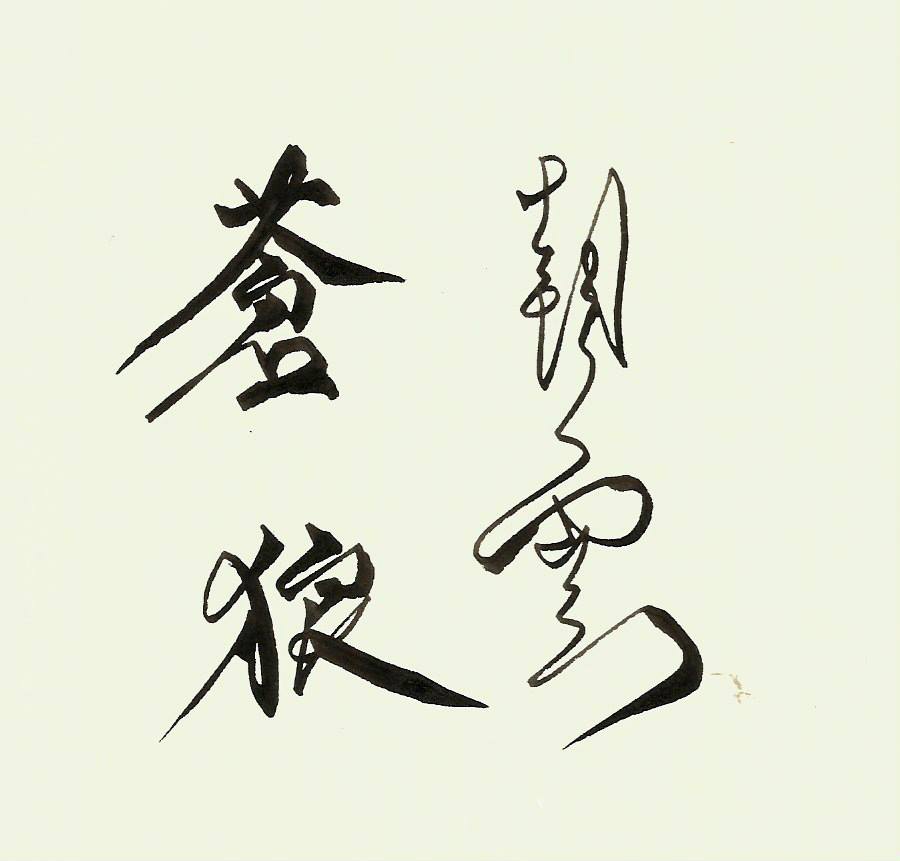 朝雲
蒼狼